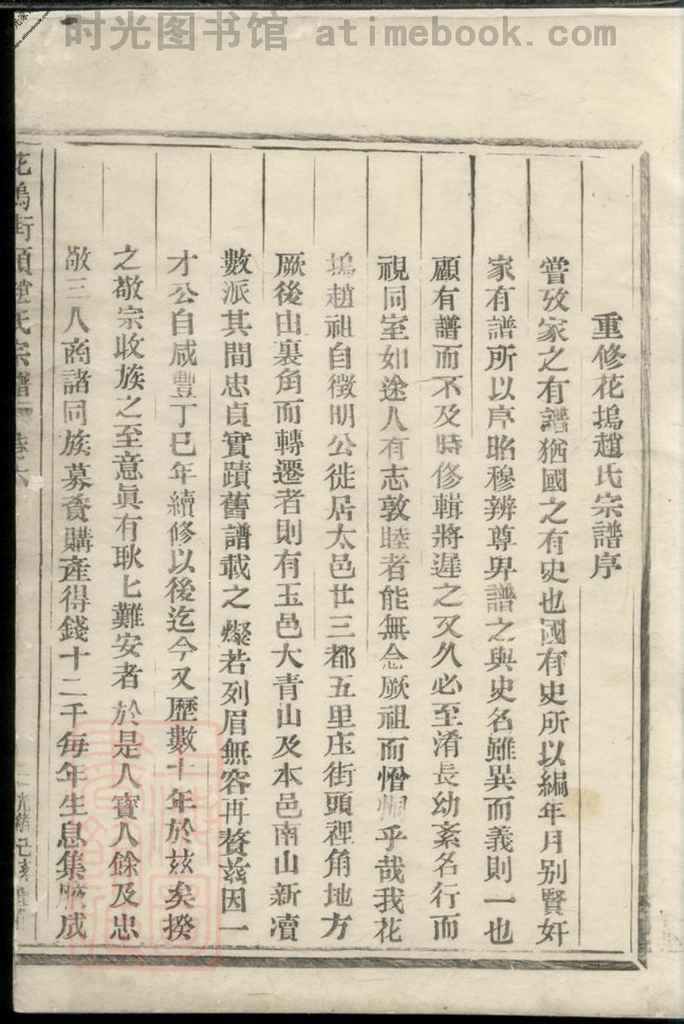 时光图书馆 atimebook.com
重修花塢趙氏宗譜序
嘗攷家之有譜猶國之有史也國有史所以編年月別賢奸
家有譜所以序昭穆辨尊卑譜之與史名雖異而義則一也
顧有譜而不及時修輯將遲之又久必至淆長幼紊名行而
視同室如途人有志敦睦者能無念厥祖而憎惘乎哉我花
塢趙祖自徵明公徙居太邑廿三都五里庄街頭裡角地方
厥後由裏角而轉遷者則有玉邑大青山及本邑南山新瀆
數派其間忠貞實蹟舊譜載之燦若列眉無容再贅茲因一
才公自咸豐丁巳年續修以後迄今又歷數十年於玆矣揆
之敬宗收族之至意眞有耿匕難安者於是人寶人餘及忠
敬三人商諸同族募資購產得錢十二千每年生息集腋成
花塢街頭趙氏宗譜 卷六
光緒己亥